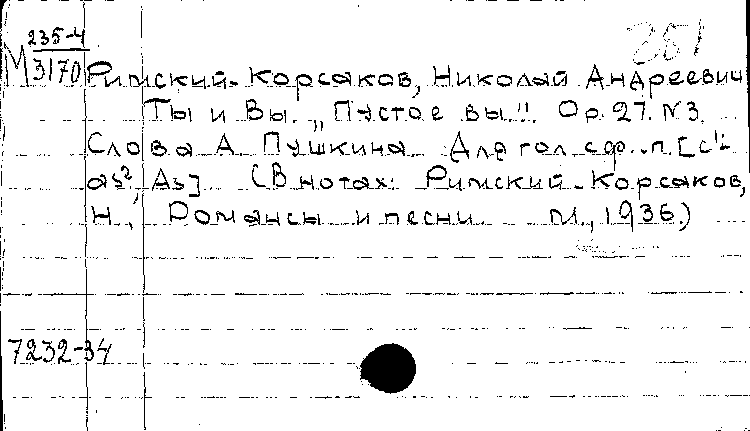 235-4
251
М 3170 Римский-Корсаков, Николай Андреевич
Ты и Вы. „Пустое вы"!. Op. 27. N 3.
Слова А. Пушкина. Для гол. с ф.-п. [c¹-
as², As] (В нотах: Римский-Корсаков,
Н., Романсы и песни М., 1936.)
7232-34